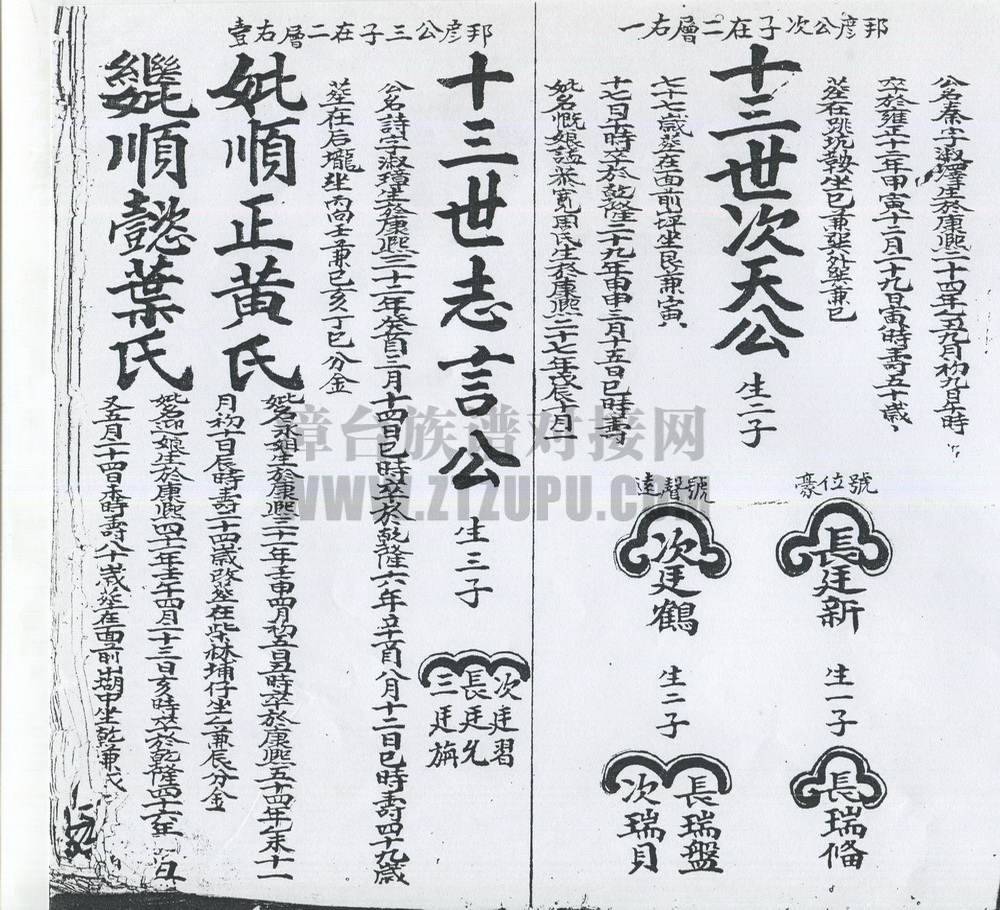 邦彦公次子在二層右一
公名秦字淑澤生於康熙二十四年乙丑九月初九日丑時
卒於雍正十二年甲寅十二月十九日寅時壽五十歲
塟在坑坐巳兼
十三世次天公
生二子
七十七歲塟在面前坪坐艮兼寅
十七日丑時卒於乾隆二十九年甲申三月十五日巳時壽
妣名慨娘謚恭寬周氏生於康熙二十七年戊辰十月
號位豪
長廷新
生一子
長瑞脩
號聲遠
次廷鶴
生二子
長瑞盤
次瑞貝
邦彦公三子在二層右壹
十三世志言公
生三子
次廷習
長廷允
三廷旃
公名詩字淑璋生於康熙三十二年癸酉三月十四日巳時卒於乾隆六年辛酉八月十二日巳時壽四十九歲
塟在后壠坐丙向壬兼巳亥丁巳分金
妣順正黄氏
妣名生於康熙三十一年壬申四月初五日丑時卒於康熙五十四年乙未十一
月初十日辰時壽二十四歲改塟在柴林埔仔坐乙兼辰分金
繼妣順懿葉氏
妣名娘生於康熙四十一年壬午四月二十三日亥時卒於乾隆四十六年
又五月二十四日未時壽八十歲塟在面前出湖中坐乾兼戌
漳台族谱对接网
WWW.ZTZUPU.COM